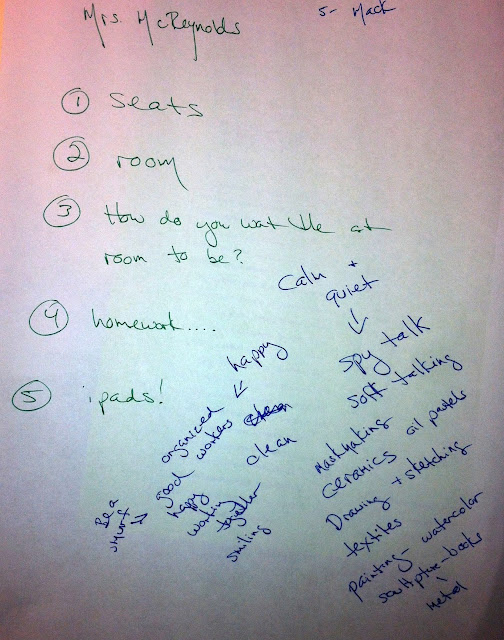 Mrs. McReynolds
5- Mack
① Seats
② room
③ How do you wat the at
room to be?
④ homework....
⑤ ipads!
Calm +
quiet
spy talk
soft talking
happy
organized
workers
clean
good
happy
working
together
smiling
Be a
maskmaking
ceramics oil pastels
Drawing + sketching
textiles
painting- watercolor
sculptpture-books
metal